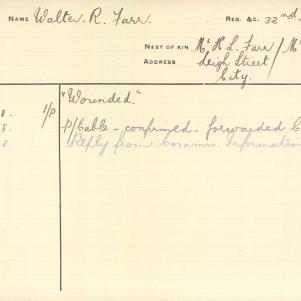 NAME Walter R. Farr. REG. &C. 32nd
NEXT OF KIN Mr H L. Farr
ADDRESS Leigh Street
City.
8. 1/P "Wounded."
8. P/Cable - confirmed - forwarded
8. Reply from Commis. Information